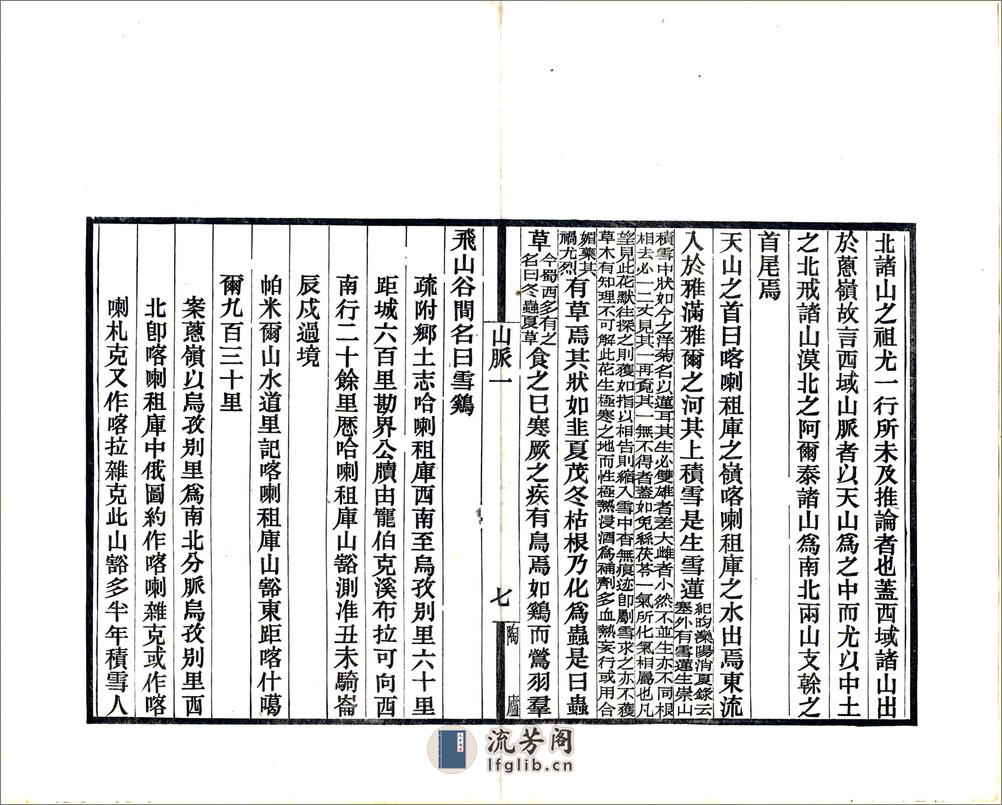 北諸山之祖尤一行所未及推論者也蓋西域諸山出
於蔥嶺故言西域山脈者以天山爲之中而尤以中土
之北戒諸山漠北之阿爾泰諸山爲南北兩山支榦之
首尾焉
天山之首曰喀喇租庫之嶺喀喇租庫之水出焉東流
入於雅滿雅爾之河其上積雪是生雪蓮
紀昀灤陽消夏錄云
塞外有雪蓮生崇山
積雪中狀如今之洋菊名以蓮耳其生必雙雄者差大雌者小然不並生亦不同根
相去必一二丈見其一再覓其一無不得者蓋如兔絲茯苓一氣所化氣相屬也凡
望見此花默往探之則獲如指以相告則縮入雪中杳無痕迹卽劚雪求之亦不獲
草木有知理不可解此花生極寒之地而性極熱浸酒爲補劑多血熱妄行或用合
媚藥其
禍尤烈
有草焉其狀如韭夏茂冬枯根乃化爲蟲是曰蟲
草
今蜀西多有之
名曰冬蟲夏草
食之已寒厥之疾有鳥焉如鷄而鶯羽羣
山脈一
七
陶廬
飛山谷間名曰雪鷄
疏附鄉土志哈喇租庫西南至烏孜別里六十里
距城六百里勘界公牘由寵伯克溪布拉可向西
南行二十餘里歷哈喇租庫山豁測准丑未騎崙
辰戍過境
帕米爾山水道里記喀喇租庫山豁東距喀什噶
爾九百三十里
案蔥嶺以烏孜別里爲南北分脈烏孜別里西
北卽喀喇租庫中俄圖約作喀喇雜克或作喀
喇札克又作喀拉雜克此山豁多半年積雪人
流芳阁
lfglib.cn